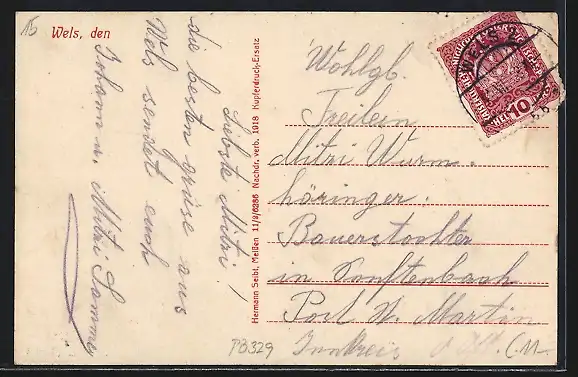 15
Wels, den
Liebste Mitzi!
die besten Grüse aus
Wels sendet euch
Johann u. Mitzi Sammer
Hermann Seibt, Meißen 11/8/6286 Nachdr. verb. 1918 Kupferdruck-Ersatz
WELS 2
10
Wohlgb.
Freilein
Mitzi Wurm-
höringer.
Bauerstochter
in Senftenbach
Post St. Martin
Innkreis O. Öst.
PB329